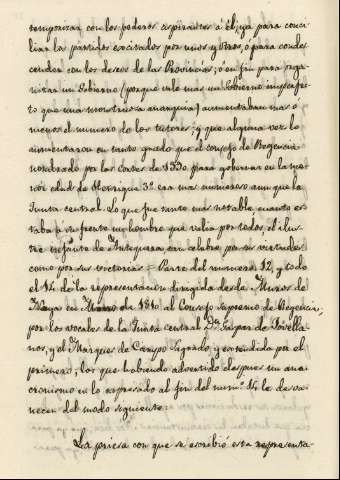 temporizar con los poderes aspirantes á él, ya para conci-
liar los partidos excitados por unos y otros, ó para conde-
cender con los deseos de las Provincias; ó en fin para orga-
nizar un Gobierno (porque vale mas un Gobierno imperfec-
to que una monstruosa anarquia) aumentaban mas ó
menos el numero de los tutores; y que alguna vez lo
aumentaron en tanto grado que el consejo de Regencia
nombrado por las cortes de 1390. para gobernar en la me-
nor edad de Henrique 3º era mas numeroso aun que la
Junta central. Lo que fue tanto mas notable quanto es-
taba á su frente un hombre que valia por todos, el ilus-
tre infante de Antequera tan celebre por sus virtudes
como por sus victorias = Parte del numero 12, y todo
el 14 de la representacion dirigida desde Muros de
Noya en de 1810 al Consejo supremo de Regencia;
por los vocales de la Junta central Dn. Gaspar de Jovella-
nos, y el Marques de Campo Sagrado, y extendida por el
primero; los que habiendo advertido despues un ana-
cronismo en lo expresado al fin del num.º 14 le desva-
necen del modo siguiente:
La priesa con que se escribió esta representa-